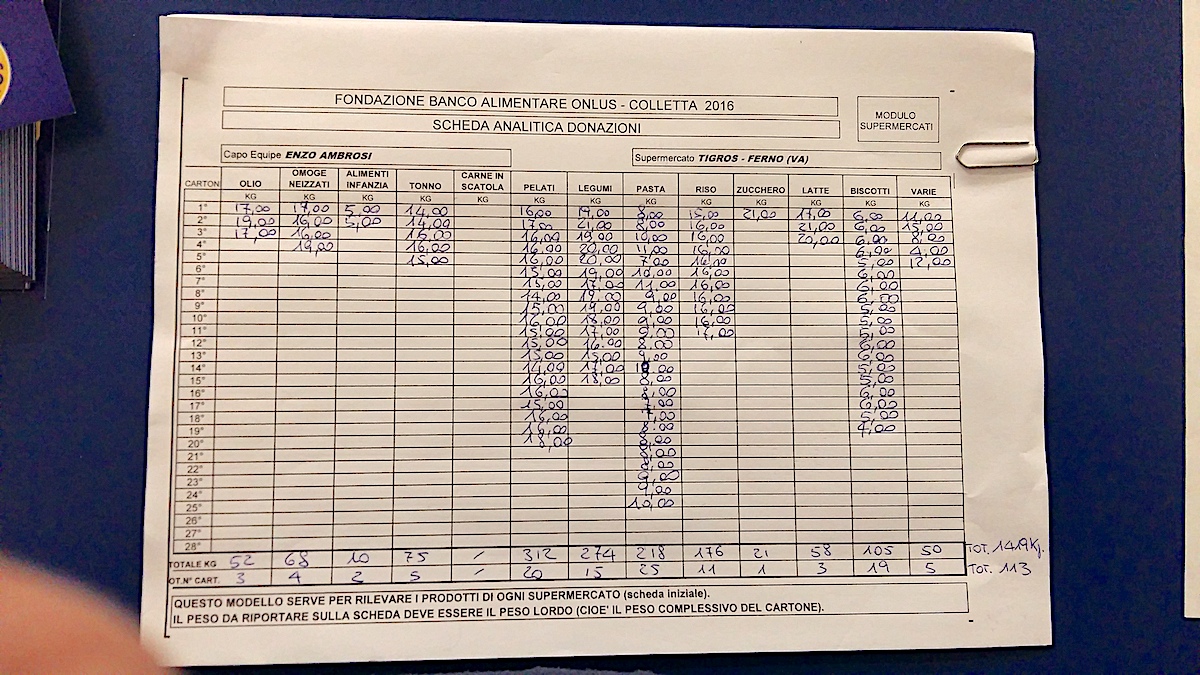 FONDAZIONE BANCO ALIMENTARE ONLUS - COLLETTA 2016
SCHEDA ANALITICA DONAZIONI
MODULO SUPERMERCATI
Capo Equipe ENZO AMBROSI
Supermercato TIGROS - FERNO (VA)
CARTON OLIO OMOGENEIZZATI ALIMENTI INFANZIA TONNO CARNE IN SCATOLA PELATI LEGUMI PASTA RISO ZUCCHERO LATTE BISCOTTI VARIE
KG KG KG KG KG KG KG KG KG KG KG KG KG
1° 17,00 5,00 14,00 16,00 8,00 15,00 21,00 17,00 6,00 11,00
2° 19,00 16,00 5,00 14,00 17,00 21,00 8,00 16,00 21,00 6,00 15,00
3° 17,00 16,00 16,00 16,00 19,00 10,00 16,00 20,00 6,00 8,00
4° 19,00 16,00 16,00 20,00 11,00 16,00 6,00 4,00
5° 15,00 16,00 20,00 7,00 16,00 5,00 12,00
6° 15,00 19,00 10,00 16,00 6,00
7° 15,00 17,00 11,00 16,00 6,00
8° 14,00 19,00 9,00 16,00 6,00
9° 15,00 19,00 9,00 16,00 5,00
10° 16,00 18,00 9,00 16,00 5,00
11° 15,00 17,00 9,00 17,00 5,00
12° 15,00 16,00 8,00 6,00
13° 15,00 15,00 9,00 6,00
14° 14,00 17,00 5,00
15° 16,00 18,00 8,00 5,00
16° 16,00 8,00 6,00
17° 15,00 7,00 6,00
18° 16,00 7,00 5,00
19° 16,00 8,00 4,00
20° 18,00 8,00
21° 8,00
22° 8,00
23° 9,00
24° 9,00
25° 10,00
26°
27°
28°
TOTALE KG 52 68 10 75 / 312 274 218 176 21 58 105 50 TOT. 1419 Kg.
OT.N° CART. 3 4 2 5 / 20 15 25 11 1 3 19 5 TOT. 113
QUESTO MODELLO SERVE PER RILEVARE I PRODOTTI DI OGNI SUPERMERCATO (scheda iniziale).
IL PESO DA RIPORTARE SULLA SCHEDA DEVE ESSERE IL PESO LORDO (CIOE' IL PESO COMPLESSIVO DEL CARTONE).